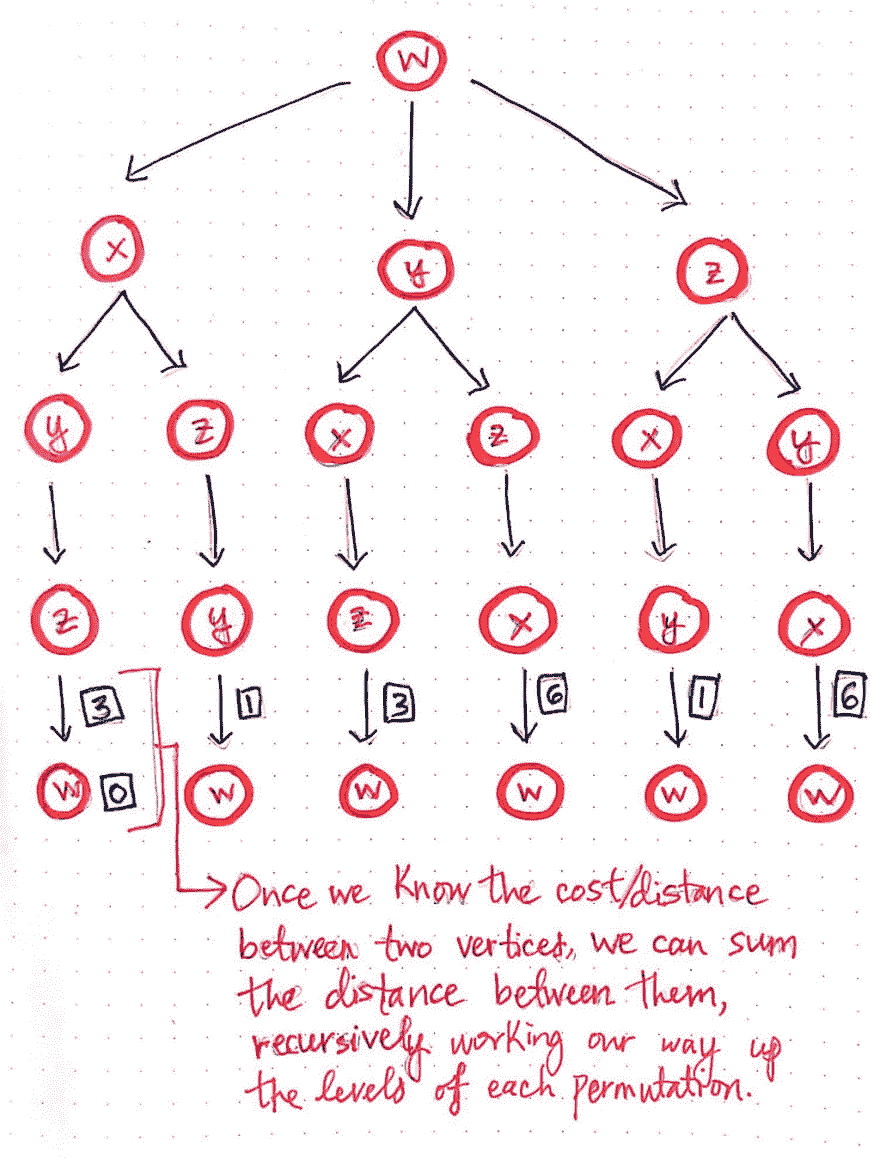 W
x y z
y z x z x y
z y z x y x
3 1 3 6 1 6
w 0 w w w w w
Once we know the cost/distance
between two vertices, we can sum
the distance between them,
recursively working our way up
the levels of each permutation.